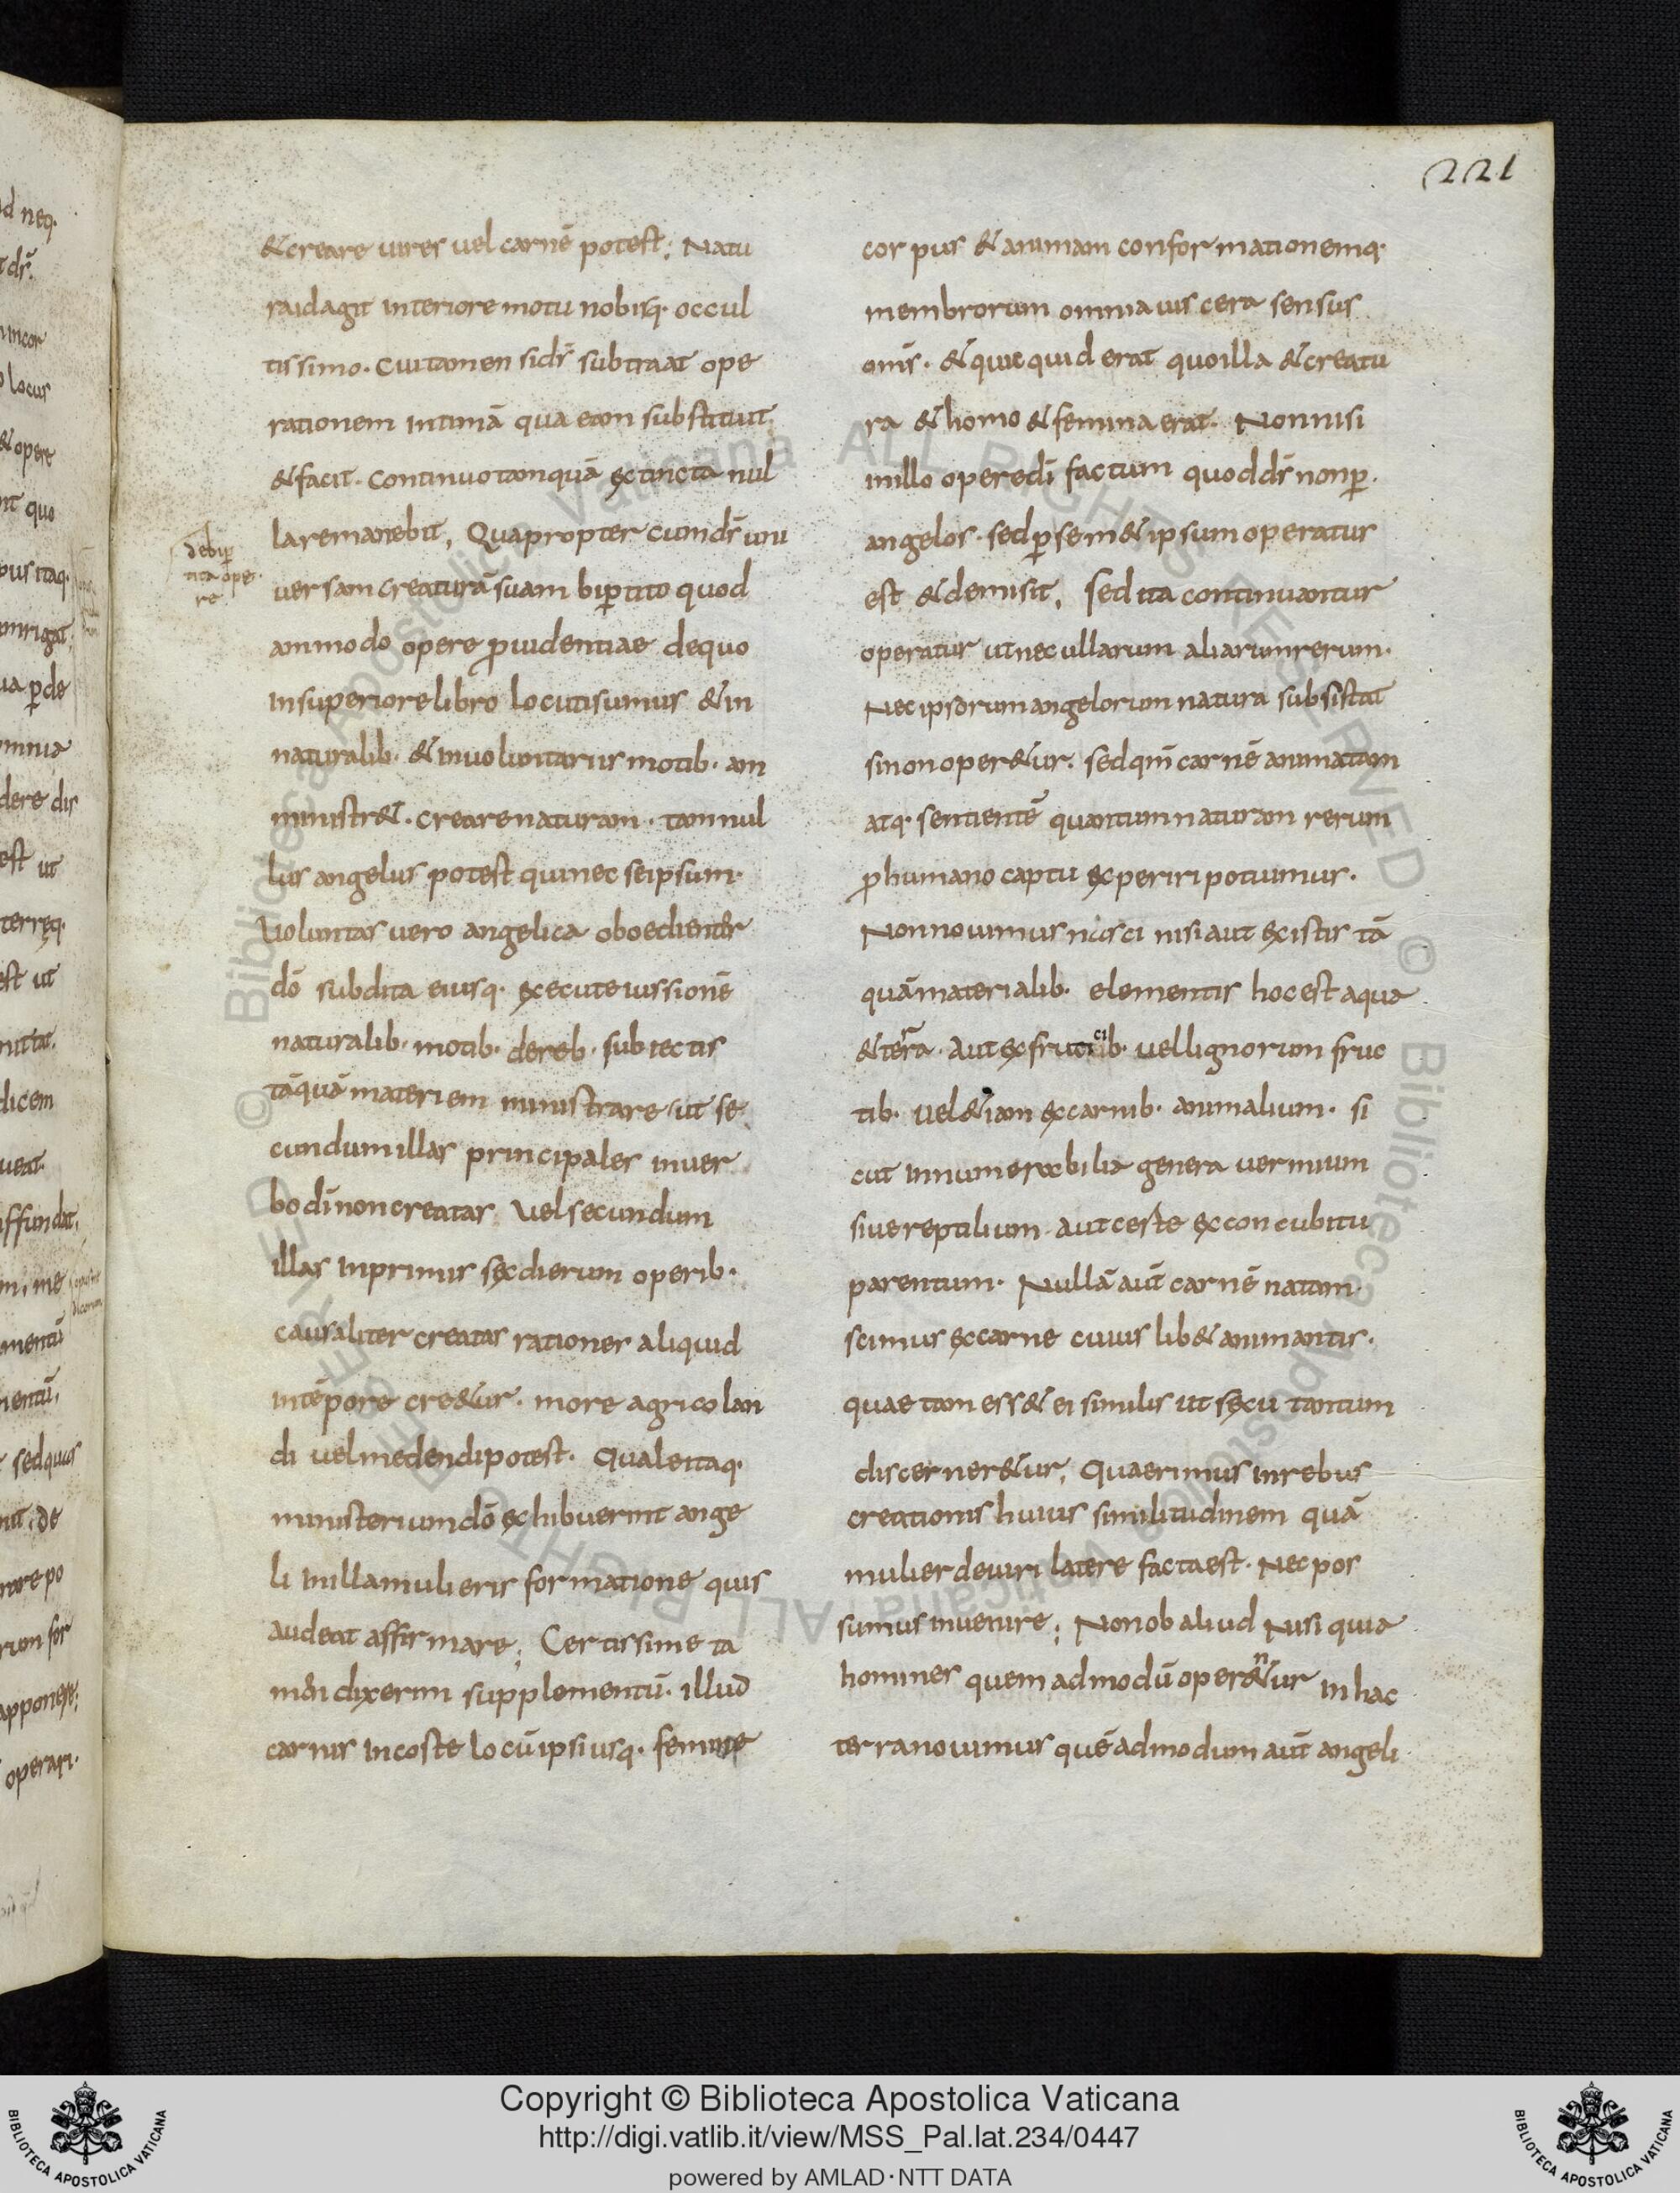 221
& creare uires uel carnē potest; Natu
ra id agit interiore motu nobisq· occul
tissimo· cui tamen si dr̄ subtraat ope
rationem intimā qua eam substituit
& facit· continuo tamquā extincta nul
la remanebit, Quapropter cum dr̄ uni
uersam creaturā suam bip̱tito quod
ammodo opere p̱uidentiae de quo
in superiore libro locuti sumus & in
naturalib· & in uoluntariis motib· am
ministr&· creare naturam· tam nul
lus angelus potest qui nec se ipsum·
Uoluntas uero angelica oboedienter
dō subdita eiusq· execute iussionē
naturalib· motib· de reb· subiectis
tāquā materiem ministrare ut se
cundum illas principales in uer
bo dī non creatas Vel secundum
illas in primis sex dierum operib·
causaliter creatas rationes aliquid
in tēpore cre&ur· more agricolan
di uel medendi potest· Quale itaq·
ministerium dō exhibuerint ange
li in illa mulieris formatione quis
audeat affirmare; Certissime ta
m̄ dixerim supplementū· illud
carnis in coste locū ipsiusq· femine
de bip̱
tita ope
re
corpus & animam conformationemq·
membrorum omnia uiscera sensus
om̄s· & quicquid erat quo illa & creatu
ra & homo & femina erat· Non nisi
in illo opere dī factum quod dr̄ non p̱·
angelos· sed p̱ sem& ipsum operatus
est & demisit, Sed ita continuantur
operatur ut nec ullarum aliarum rerum·
Nec ipsorum angelorum natura subsistat
si non oper&ur· sed qm̄ carnē animatam
atq· sentientē quantum naturam rerum
p̱ humano captu experiri potuimus·
Non nouimus nasci nisi aut ex istis tā
quā materialib· elementis hoc est aqua
& terra· Aut ex fruticib· uel lignorum fruc
tib· uel &iam ex carnib· animalium· si
cut innumerabilia genera uermium
siue reptilium· aut certe ex concubitu
parentum· Nullā aut̄ carnē natam
scimus ex carne cuius lib& animantis·
quae tam ess& ei similis ut sexu tantum
discerner&ur, Quaerimus in rebus
creationis huius similitudinem quā
mulier de uiri latere facta est· Nec pos
sumus inuenire; Non ob aliud Nisi quia
homines quem admodū oper&nur in hac
terra nouimus quē admodum aut̄ angeli
Copyright © Biblioteca Apostolica Vaticana
http://digi.vatlib.it/view/MSS_Pal.lat.234/0447
powered by AMLAD·NTT DATA